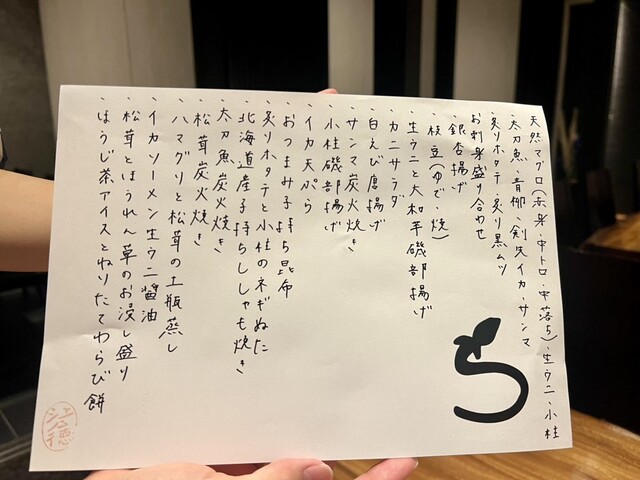 天然マグロ(赤身・中トロ・中落ち)・生ウニ・小柱
・太刀魚・青柳・剣先イカ・サンマ
・炙りホタテ・炙り黒ムツ
お刺身盛り合わせ
・銀杏揚げ
・枝豆(ゆで・焼)
・生ウニと大和芋磯部揚げ
・カニサラダ
・白えび唐揚げ
・サンマ炭火焼き
・小柱磯部揚げ
・イカ天ぷら
・おつまみ子持ち昆布
・炙りホタテと小柱のネギぬた
・北海道産子持ちししゃも焼き
・太刀魚炭火焼き
・松茸炭火焼き
・ハマグリと松茸の土瓶蒸し
・イカソーメン生ウニ醤油
・松茸とほうれん草のお浸し盛り
・ほうじ茶アイスとねりたてわらび餅
ち